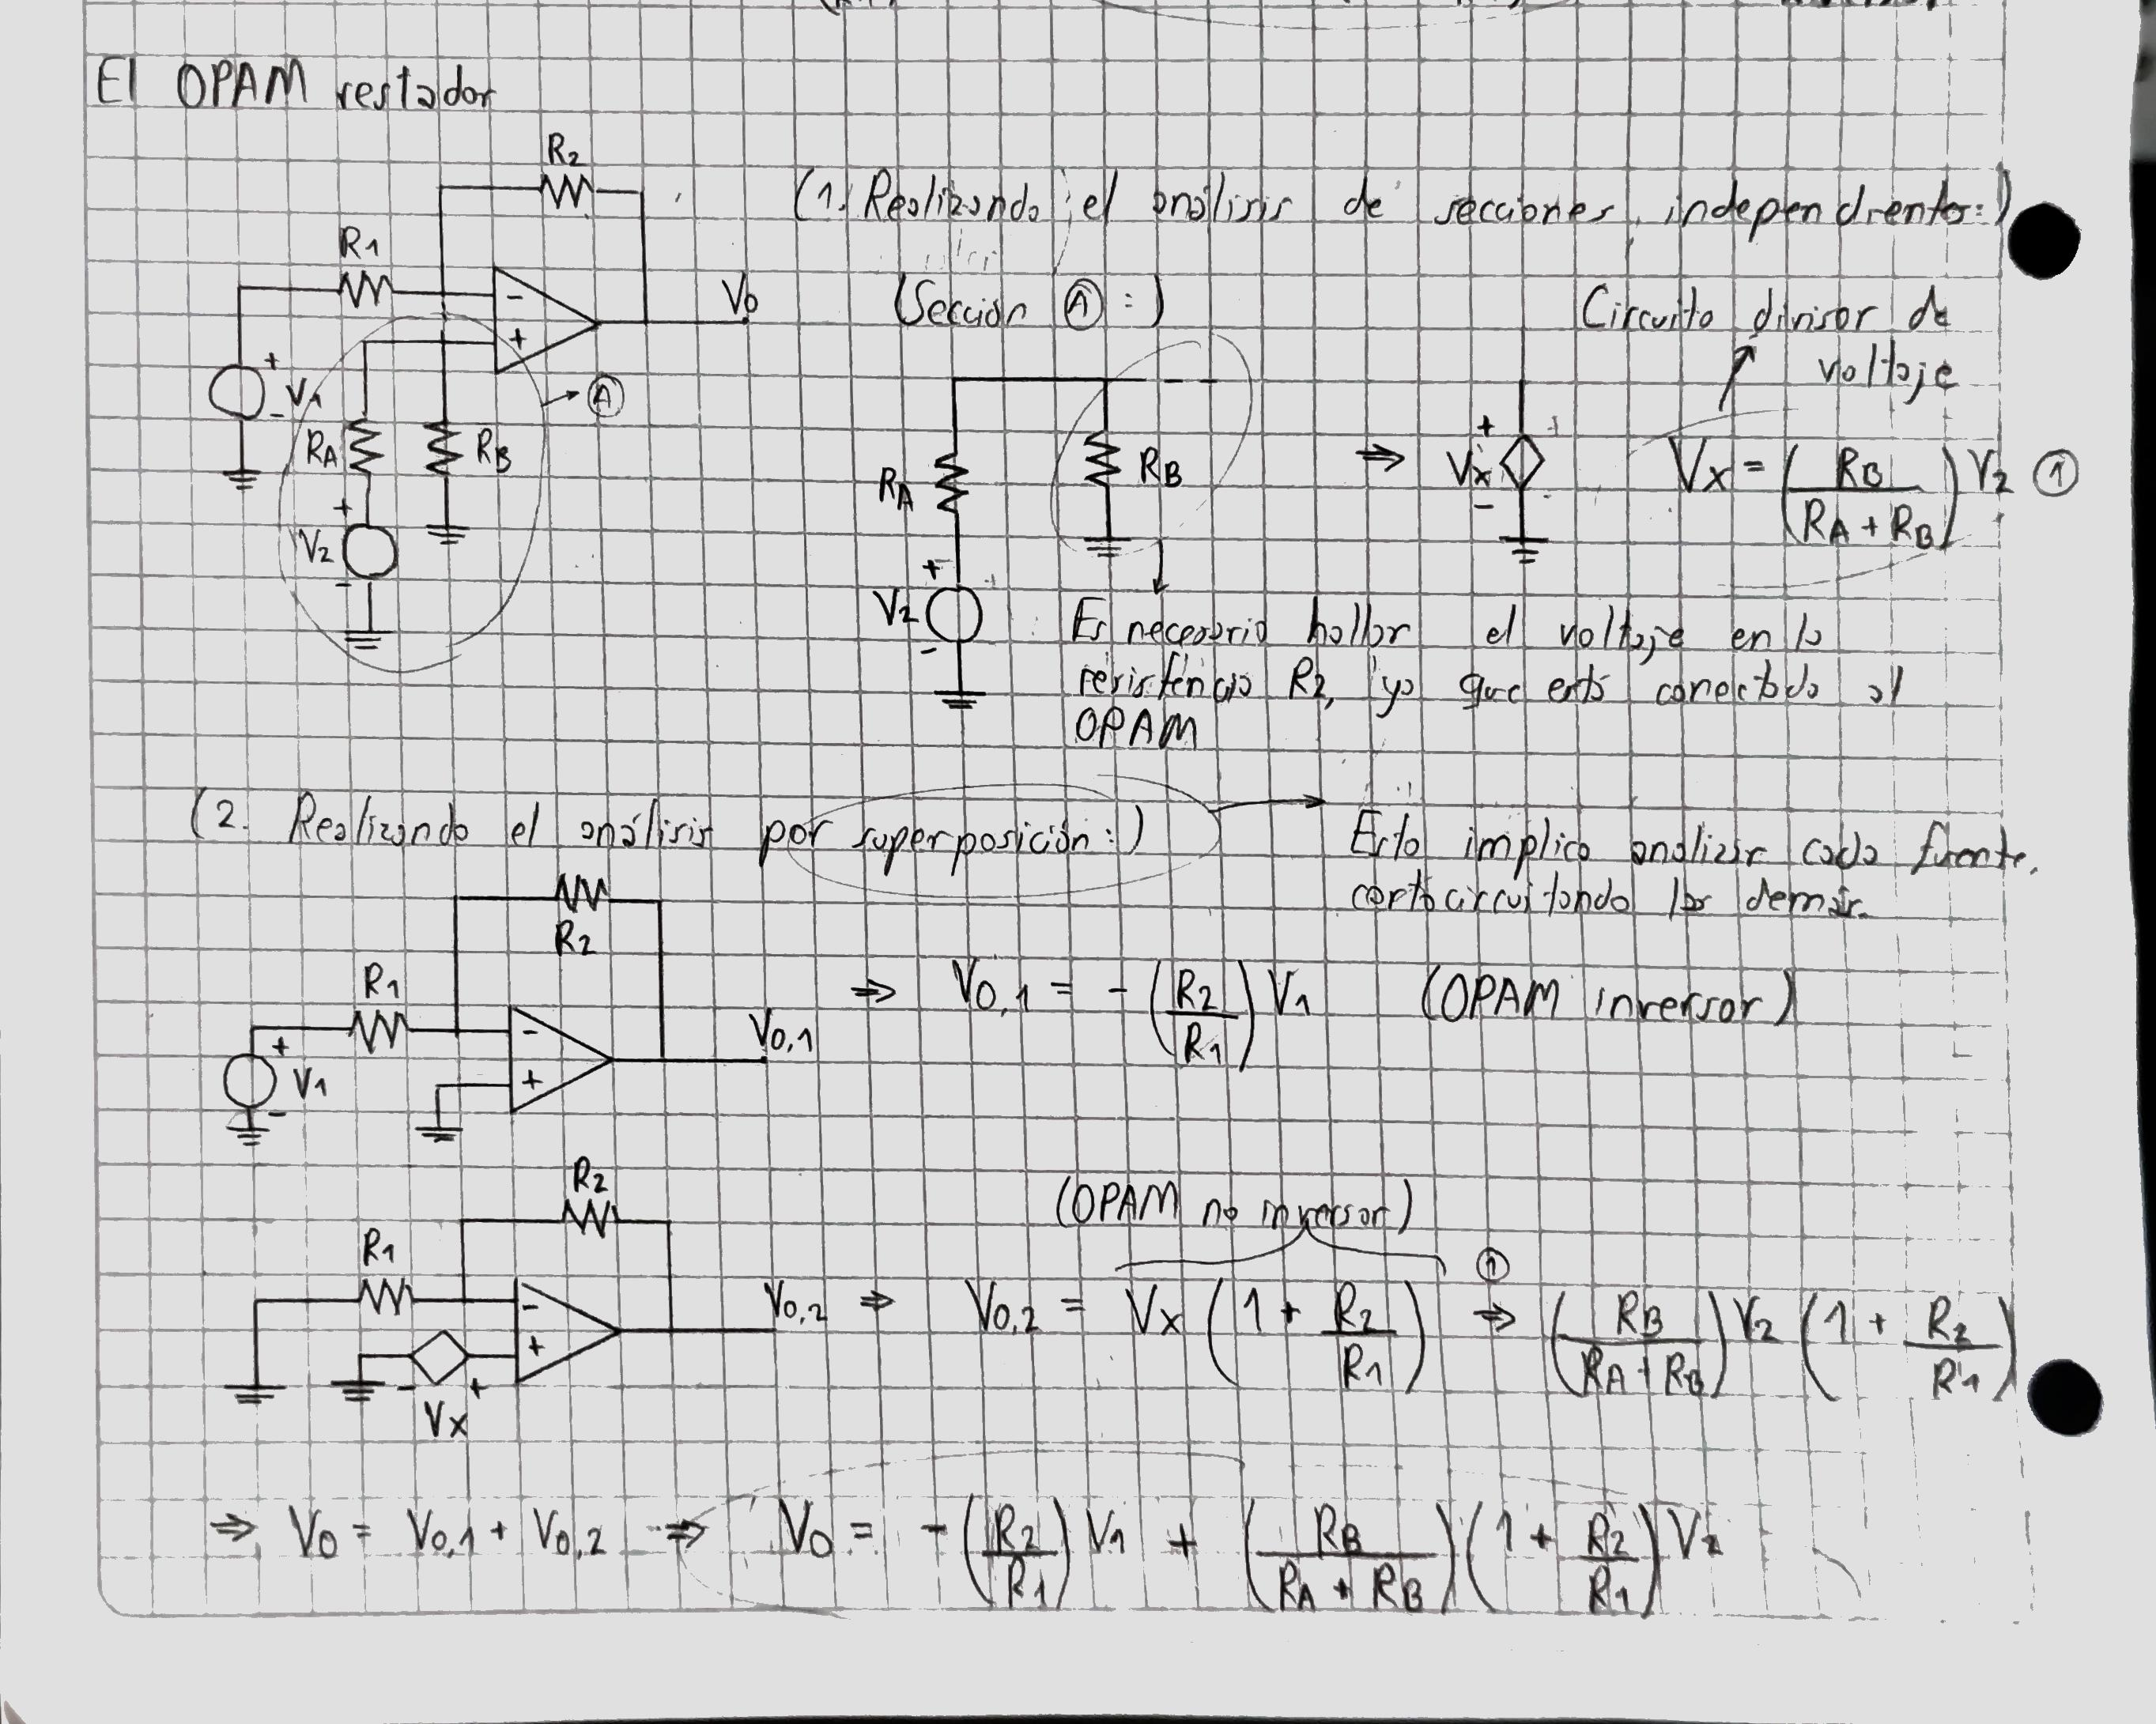 El OPAM restador
R2
(1. Realizando el análisis de secciones independientes:)
R1
V0
(Sección Ⓐ :)
Circuito divisor de
voltaje
-
+
+
V1
-
Ⓐ
RA
RB
+
V2
-
RA
RB
+
V2
-
⇒
+
Vx
-
Vx = (RB / (RA + RB)) V2 ①
Es necesario hallar el voltaje en la
resistencia R2, ya que está conectada al
OPAM
(2. Realizando el análisis por superposición:)
Esto implica analizar cada fuente,
cortocircuitando las demás.
R2
R1
-
+
+
V1
-
V0,1
⇒ V0,1 = - (R2 / R1) V1 (OPAM inversor)
R2
(OPAM no inversor)
R1
-
+
- +
Vx
V0,2 ⇒ V0,2 = Vx (1 + R2 / R1) ① ⇒ (RB / (RA + RB)) V2 (1 + R2 / R1)
⇒ V0 = V0,1 + V0,2 ⇒ V0 = - (R2 / R1) V1 + (RB / (RA + RB)) (1 + R2 / R1) V2